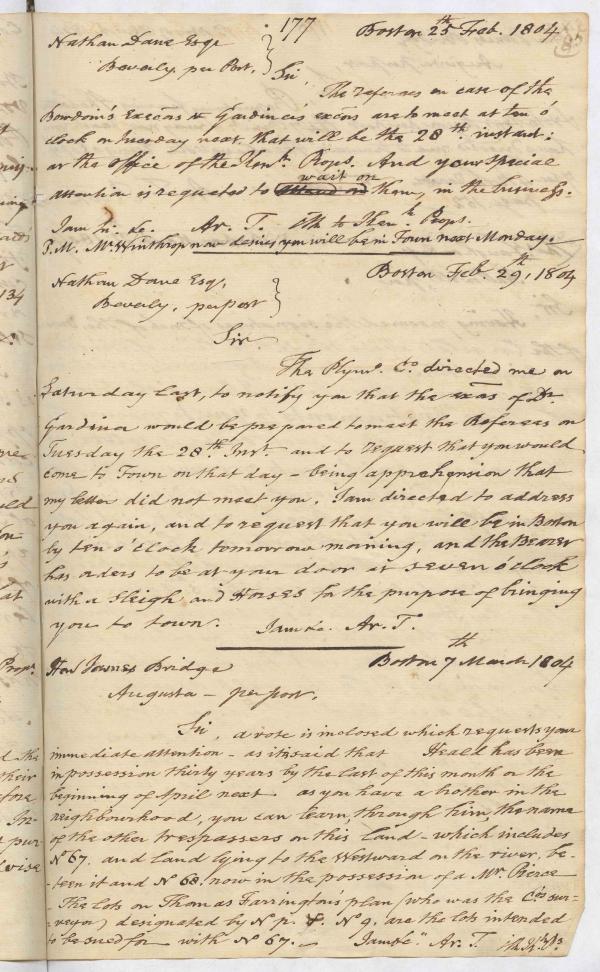 177
Boston 25th Feb. 1804
Nathan Dane Esqr
Beverly, per Post.
Sir
The referees in case of the
Bowdoin's Execors & Gardiner's excors are to meet at ten o'
clock on tuesday next, that will be the 28th instant:
at the office of the Kenk. Props. And your special
wait on
attention is requested to attend on them, in the business.
I am &c. Ar. T. Clk to Ken.k Props.
P.M. Mr Winthrop now denies you will be in Town next Monday.
Boston Feb. 29th, 1804
Nathan Dane Esqr,
Beverly, per post
Sir
The Plymo. Co. directed me on
Saturday last, to notify you that the exors of Dr.
Gardiner would be prepared to meet the Referees on
Tuesday the 28th Inst. and to request that you would
come to Town on that day - being apprehension that
my letter did not meet you. I am directed to address
you again, and to request that you will be in Boston
by ten o'clock tomorrow morning, and the Bearer
has orders to be at your door at seven o'clock
with a Sleigh and Horses for the purpose of bringing
you to town. I am &c. Ar. T.
Boston 7th March 1804
Hon James Bridge
Augusta - per post.
Sir, a vote is inclosed which requests your
immediate attention - as it is said that Heald has been
in possession thirty years by the last of this month or the
beginning of April next as you have a brother in the
neighbourhood, you can learn, through him, the name
of the other trespassers on this land - which includes
No 67. and land lying to the Westward on the river, be-
teen it and No 68. now in the possession of a Mr. Pierce
- The lots on Thomas Farrington's plan (who was the Co's sur-
veyor) designated by N p. & No 9. are the lots intended
to be sued for with No 67. - I am &c. Ar. T.